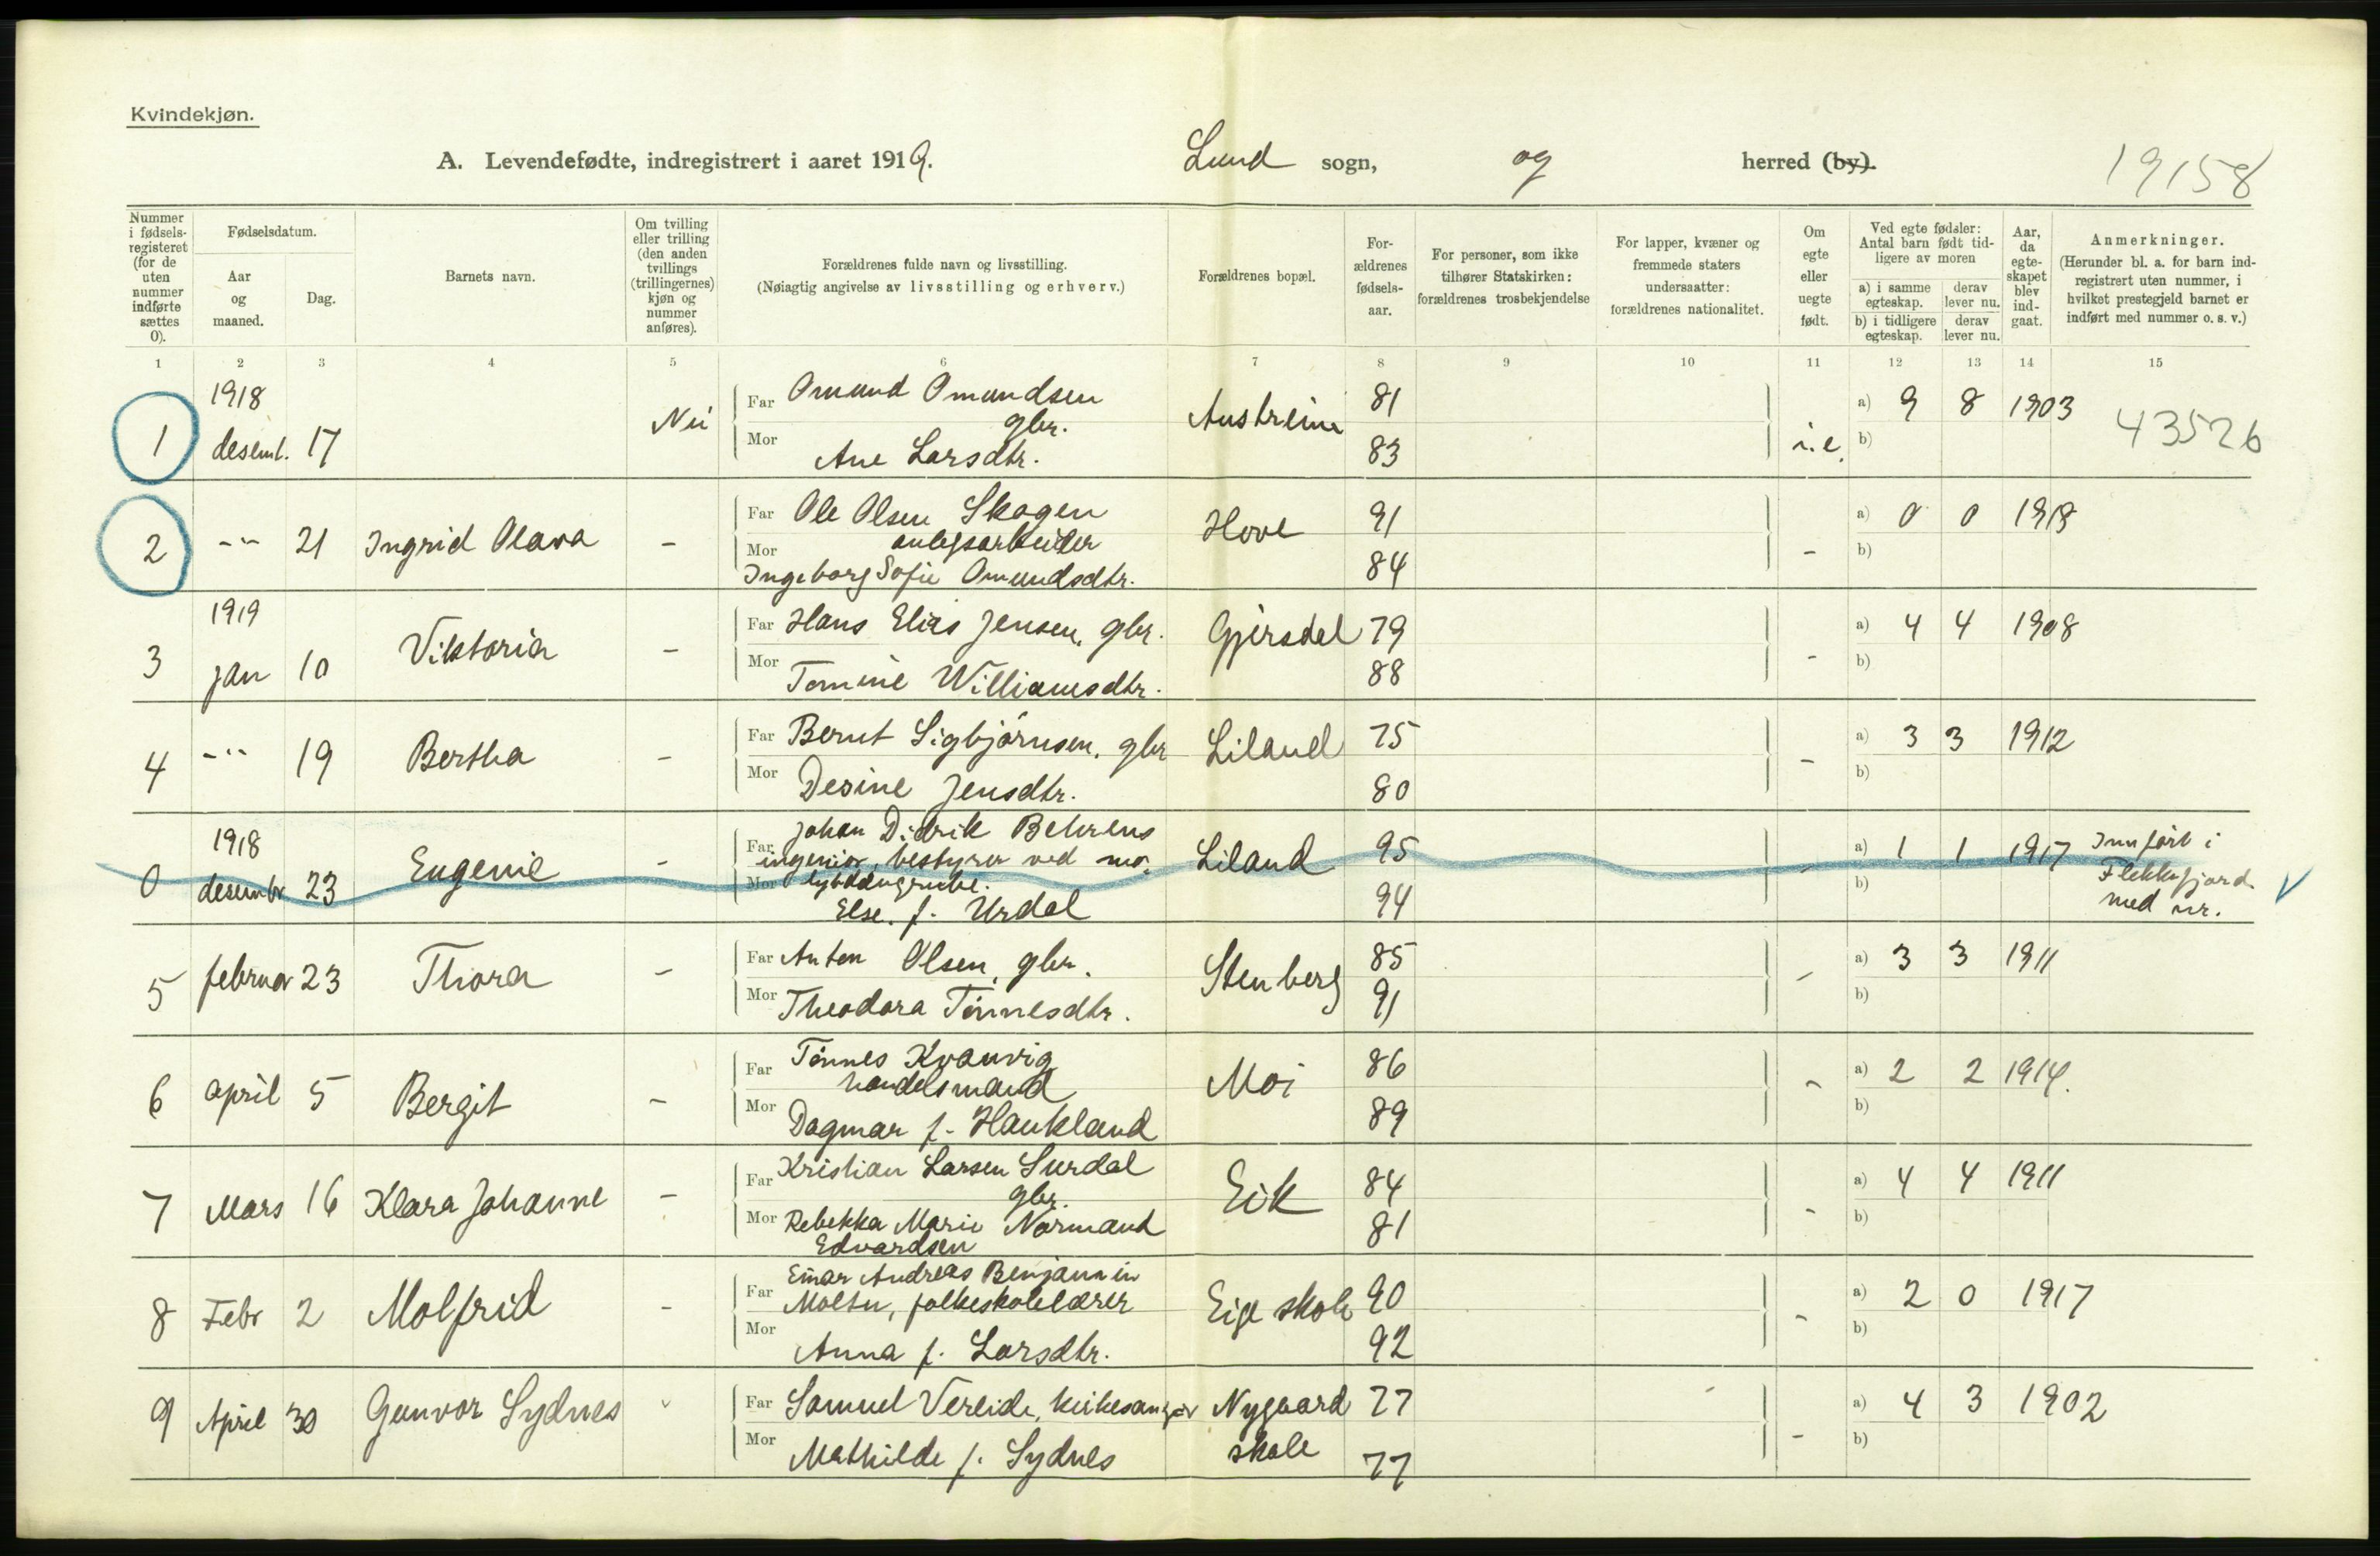 Kvindekjøn.
A. Levendefødte, indregistrert i aaret 1919. Lund sogn, og herred (by). 19158
Nummer i fødsels-registeret (for de uten nummer indførte sættes 0).
Fødselsdatum.
Aar og maaned.
Dag.
Barnets navn.
Om tvilling eller trilling (den anden tvillings (trillingernes) kjøn og nummer anføres).
Forældrenes fulde navn og livsstilling.
(Nøiagtig angivelse av livsstilling og erhverv.)
Forældrenes bopæl.
For-ældrenes fødsels-aar.
For personer, som ikke tilhører Statskirken: forældrenes trosbekjendelse
For lapper, kvæner og fremmede staters undersaatter: forældrenes nationalitet.
Om egte eller uegte født.
Ved egte fødsler: Antal barn født tid-ligere av moren
a) i samme egteskap. derav lever nu.
b) i tidligere egteskap. derav lever nu.
Aar, da egte-skapet blev ind-gaat.
Anmerkninger.
(Herunder bl. a. for barn ind-registrert uten nummer, i hvilket prestegjeld barnet er indført med nummer o. s. v.)
1 2 3 4 5 6 7 8 9 10 11 12 13 14 15
1918
1 desemb. 17 Nei Far Omund Omundsen gbr. Austreim 81 i.e. a) 9 8 1903 43526
Mor Ane Larsdtr. 83 b)
2 -"- 21 Ingrid Olava - Far Ole Olsen Skogen Hove 91 - a) 0 0 1918
anlegsarbeider
Mor Ingeborg Sofie Omundsdtr. 84 b)
1919
3 jan 10 Viktoria - Far Hans Elias Jensen, gbr. Gjersdal 79 - a) 4 4 1908
Mor Tomine Williamsdtr. 88 b)
4 -"- 19 Bertha - Far Bernt Sigbjørnsen, gbr Liland 75 - a) 3 3 1912
Mor Desine Jensdtr. 80 b)
1918
0 desembr 23 Eugenie - Far Johan Didrik Behrens Liland 95 - a) 1 1 1917 Innført i
ingeniør, bestyrer ved mo- Flekkefjord
lybdængrube. med nr.
Mor Else f. Urdal 94 b)
5 februar 23 Thora - Far Anton Olsen, gbr. Stenberg 85 - a) 3 3 1911
Mor Theodora Tønnesdtr. 91 b)
6 april 5 Bergit - Far Tønnes Kvanvig Moi 86 - a) 2 2 1914.
handelsmand
Mor Dagmar f. Haukland 89 b)
7 Mars 16 Klara Johanne - Far Kristian Larsen Surdal Eik 84 - a) 4 4 1911
gbr.
Mor Rebekka Marie Normand 81 b)
Edvardsen
8 Febr 2 Molfrid - Far Einar Andreas Benjamin Eige skole 90 - a) 2 0 1917
Moltu, folkeskolelærer
Mor Anna f. Larsdtr. 92 b)
9 April 30 Gunvor Sydnes Far Samuel Vereide, kirkesanger Nygaard 77 - a) 4 3 1902
Mor Mathilde f. Sydnes skole 77 b)